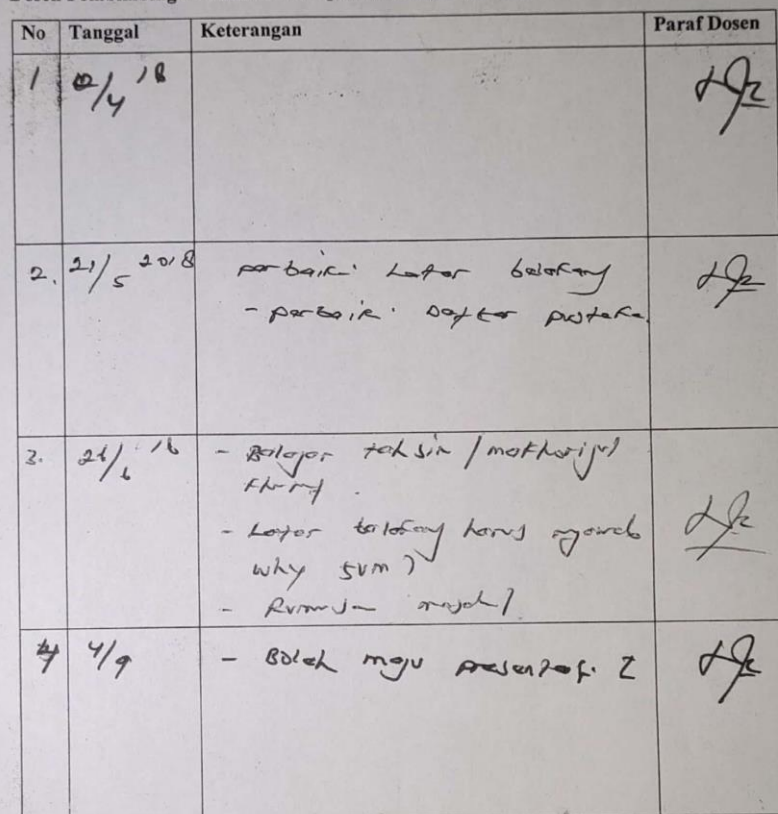 No Tanggal Keterangan Paraf Dosen
1 /4 '18
2. 21/5 2018 perbaiki Latar belakang
- perbaiki Daftar pustaka.
3. 26/6 '18 - Belajar tahsin / makharijul
khuruf.
- Latar belakang harus menjawab
why SVM?
- Rumusan masalah
4 4/9 - Boleh maju presentasi 2